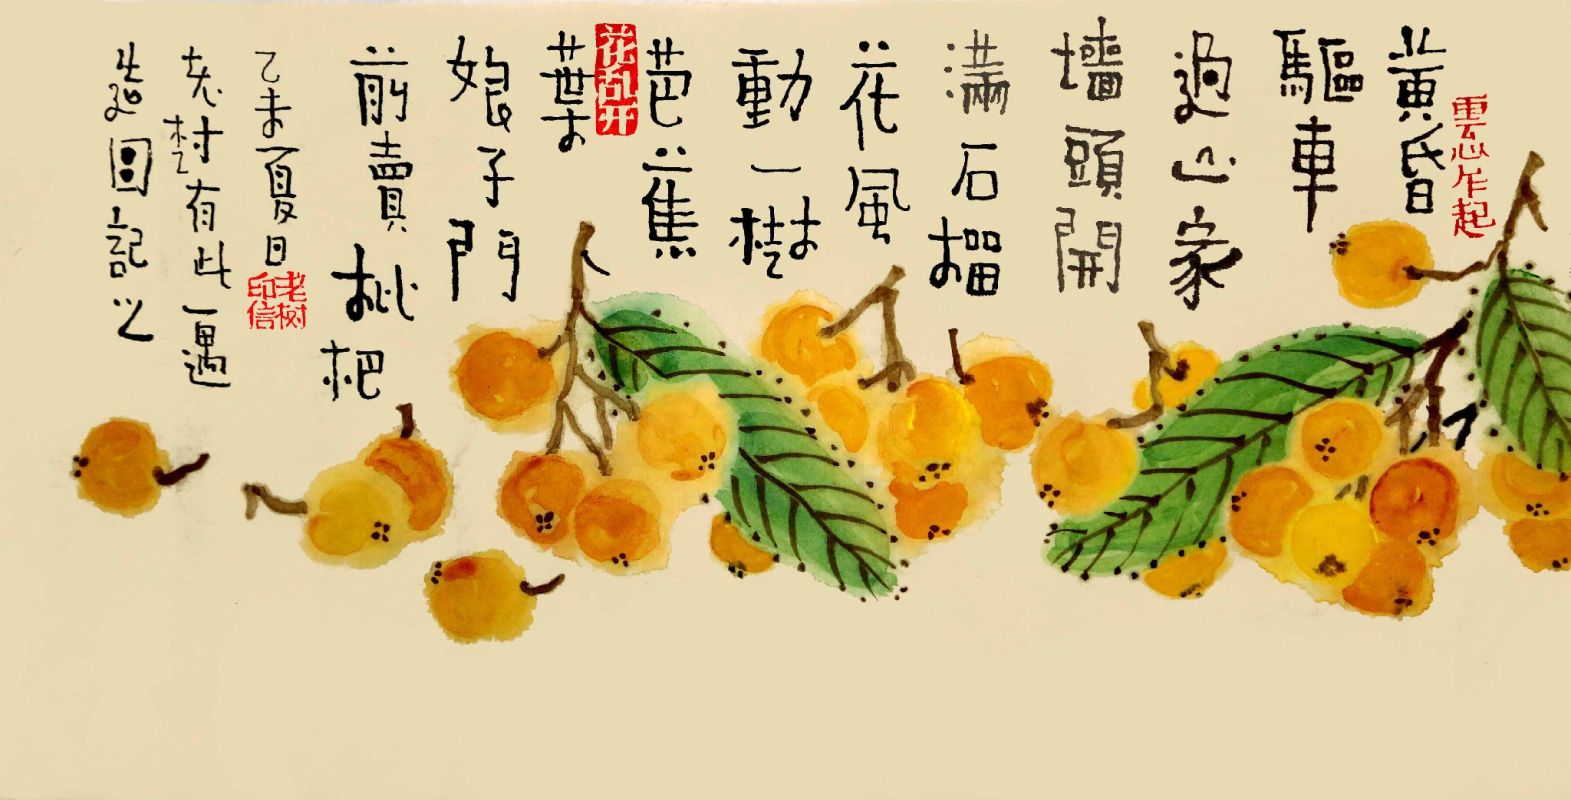 雲心乍起
黄昏
驅車
過山家
墻頭開
满石榴
花風
動一樹
芭蕉
花乱开
葉
娘子門
前賣枇
杷
乙未夏日
老樹有此一遇
造圖記之
老树
印信